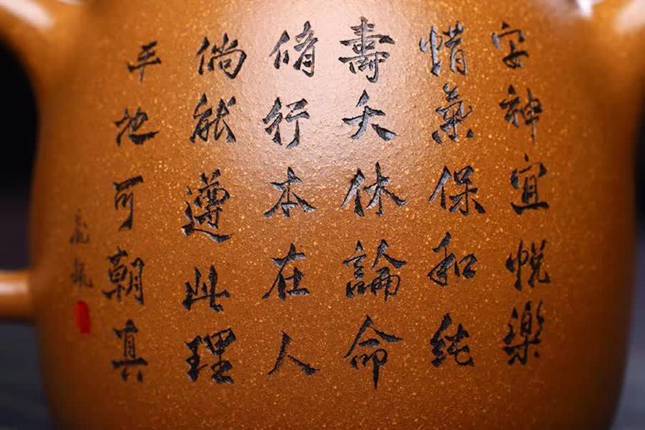 安神宜悅樂
惜氣保和純
壽夭休論命
脩行本在人
倘能遵此理
平地可朝真